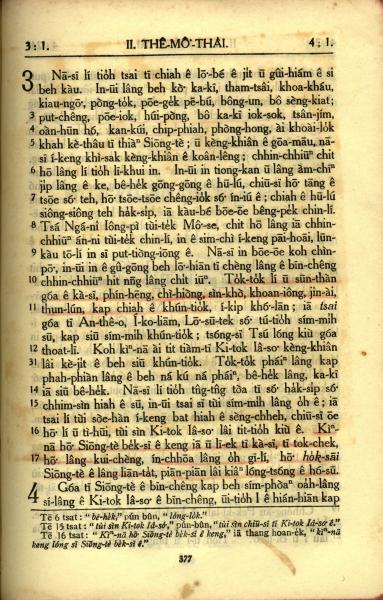 3 : 1. II. THÊ-MÔ͘-THÀI. 4 : 1.
3 Nā-sī lí tio̍h tsai tī chiah ê lō͘-bé ê ji̍t ū gûi-hiám ê sî
beh kàu. In-ūi lâng beh kò͘ ka-kī, tham-tsâi, khoa-kháu,
kiau-ngō͘, pòng-to̍k, pōe-ge̍k pē-bú, bông-un, bô sèng-kiat;
3 put-chêng, pōe-iok, húi-pòng, bô ka-kī iok-sok, tsân-jím,
4 oàn-hūn hó, kan-kúi, chip-phiah, phòng-hong, ài khoài-lo̍k
5 khah kè-thâu tī thiàⁿ Siōng-tè; ū kèng-khiân ê gōa-māu, nā-
sī í-keng khì-sak kèng-khiân ê koân-lêng; chhin-chhiūⁿ chit
6 hō lâng lí tio̍h lī-khui in. In-ūi in tiong-kan ū lâng àm-chīⁿ
ji̍p lâng ê ke, bê-he̍k gōng-gōng ê hū-lú, chiū-sī hō͘ tāng ê
7 tsōe só͘ teh, hō͘ tsōe-tsōe chêng-io̍k só͘ ín-iú ê; chiah ê hū-lú
siông-siông teh ha̍k-si̍p, iā kàu-bé bōe-ōe bêng-pe̍k chin-lí.
8 Tsá Ngá-nî lóng-pī tùi-te̍k Mô͘-se, chit hō lâng iā chhin-
chhiūⁿ án-ni tùi-te̍k chin-lí, in ê sim-chì í-keng pāi-hoāi, lūn-
9 kàu tō-lí in sī put-tiòng-iōng ê. Nā-sī in bōe-ōe koh chìn-
pō͘, in-ūi in ê gû-gōng beh lō͘-hiān tī chèng lâng ê bīn-chêng
10 chhin-chhiūⁿ hit nn̄g lâng chi̍t iūⁿ. To̍k-to̍k lí ū sūn-thàn
góa ê kà-sī, phín-hēng, chì-hiòng, sìn-khò, khoan-iông, jîn-ài,
11 thun-lún, kap chiah ê khún-tio̍k, í-ki̍p khó͘-lān; iā tsai
góa tī An-thê-o, Í-ko-liām, Lō͘-sū-tek só͘ tú-tio̍h sím-mi̍h
sū, kap siū sím-mi̍h khún-tio̍k; tsóng-sī Tsú lóng kiù góa
12 thoat-lī. Koh kìⁿ-nā ài tit tiàm-tī Ki-tok Iâ-so͘ kèng-khiân
31 lâi kè-ji̍t ê beh siū khún-tio̍k. To̍k-to̍k pháiⁿ lâng kap
phah-phiàn lâng ê beh ná kú ná pháiⁿ, bê-he̍k lâng, ka-kī
14 iā siū bê-he̍k. Nā-sī lí tio̍h tn̂g-tn̂g tòa tī só͘ ha̍k-si̍p só͘
15 chhim-sìn hiah ê sū, in-ūi tsai sī tùi sím-mi̍h lâng o̍h ê; iā
tsai lí tùi sòe-hàn í-keng bat hiah ê sèng-chheh, chiū-sī ōe
16 hō͘ lí ū tì-hūi, tùi sìn Ki-tok Iâ-so͘ lâi tit-tio̍h kiù ê. Kìⁿ-
nā hō͘ Siōng-tè be̍k-sī ê keng iā ū lī-ek tī kà-sī, tī tok-chek,
17 hō͘ lâng kui-chèng, ín-chhōa lâng o̍h gī-lí, hō͘ ho̍k-sāi
Siōng-tè ê lâng liān-ta̍t, piān-piān lâi kiâⁿ lóng-tsóng ê hó-sū.
4 Góa tī Siōng-tè ê bīn-chêng kap beh sím-phòaⁿ oa̍h-lâng
sí-lâng ê Ki-tok Iâ-so͘ ê bīn-chêng, ūi-tio̍h I ê hián-hiān kap
Tē 6 tsat: "bê-he̍k," pún bûn, "lóng-lo̍k."
Tē 15 tsat: "tùi sìn Ki-tok Iâ-so͘," pún-bûn, "tùi sìn chiū-sī tī Ki-tok Iâ-so͘ ê."
Tē 16 tsat: "Kìⁿ-nā hō͘ Siōng-tè be̍k-sī ê keng," iā thang hoan-e̍k, "kìⁿ-nā
keng lóng sī Siōng-tè be̍k-sī ê."
377